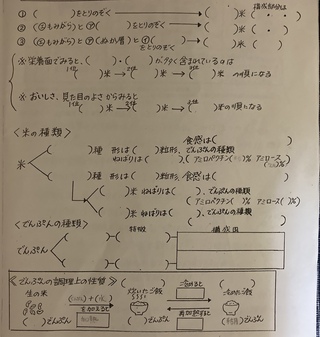 構成部分は
① ( )をとりのぞく → ( )米 ( ・ ・ )
② (㋐もみがら)と( )をとりのぞく → ( )米 ( ・ )
③ (㋐もみがら)と㋑(ぬか層)と( )をとりのぞく → ( )米 ( )
※栄養面でみると、( )・( )が多く含まれているのは
1位 ( )米 → 2位 ( )米 → 3位 ( )米 → 4位 ( )米 の順になる
※おいしさ、見た目のよさからみると
1位 ( )米 → 2位 ( )米 → 3位 ( )米 → 4位 ( )米の順になる
<米の種類>
食感は( )
米
( )種 形は( )粒形、でんぷんの種類
ねばりは( )、(アミロペクチン( )% アミロース( )%)
( )種 形は( )粒形、食感は( )
( )米 ねばりは( )、でんぷんの種類
(アミロペクチン( )% アミロース( )%)
( )米 ねばりは( )、でんぷんの種類
( )
<でんぷんの種類>
特徴 構成図
でんぷん
<でんぷんの調理上の性質>
生の米 ( )+(水) を加えると 炊いたご飯 冷めると 冷めたご飯
( )でんぷん ( )でんぷん 再加熱すると ( )でんぷん